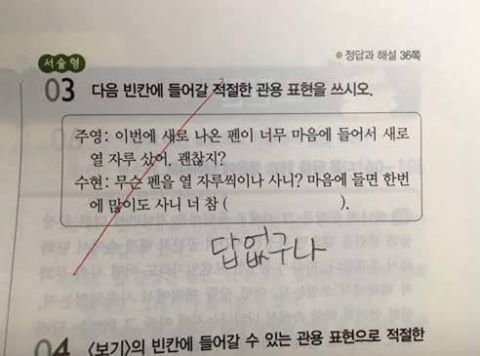 정답과 해설 36쪽
서술형
03 다음 빈칸에 들어갈 적절한 관용 표현을 쓰시오.
주영: 이번에 새로 나온 펜이 너무 마음에 들어서 새로
열 자루 샀어. 괜찮지?
수현: 무슨 펜을 열 자루씩이나 사니? 마음에 들면 한번
에 많이도 사니 너 참 ( ).
답없구나
04 <보기>의 빈칸에 들어갈 수 있는 관용 표현으로 적절한